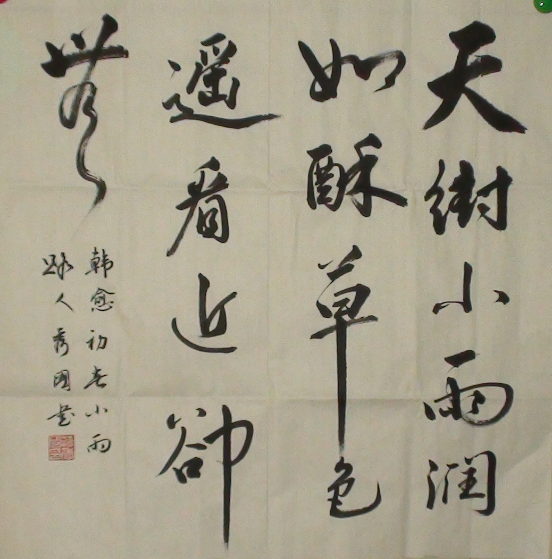 天街小雨润
如酥草色
遥看近卻
無
韩愈初春小雨
路人秀國书